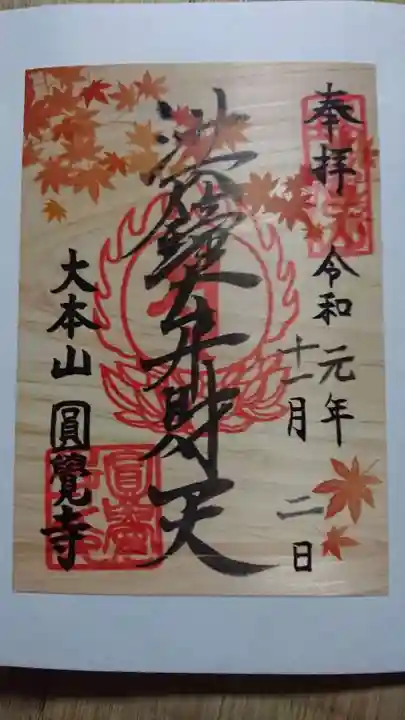 奉拝
令和元年
十一月
二日
洪鐘大弁財天
大本山圓覺寺